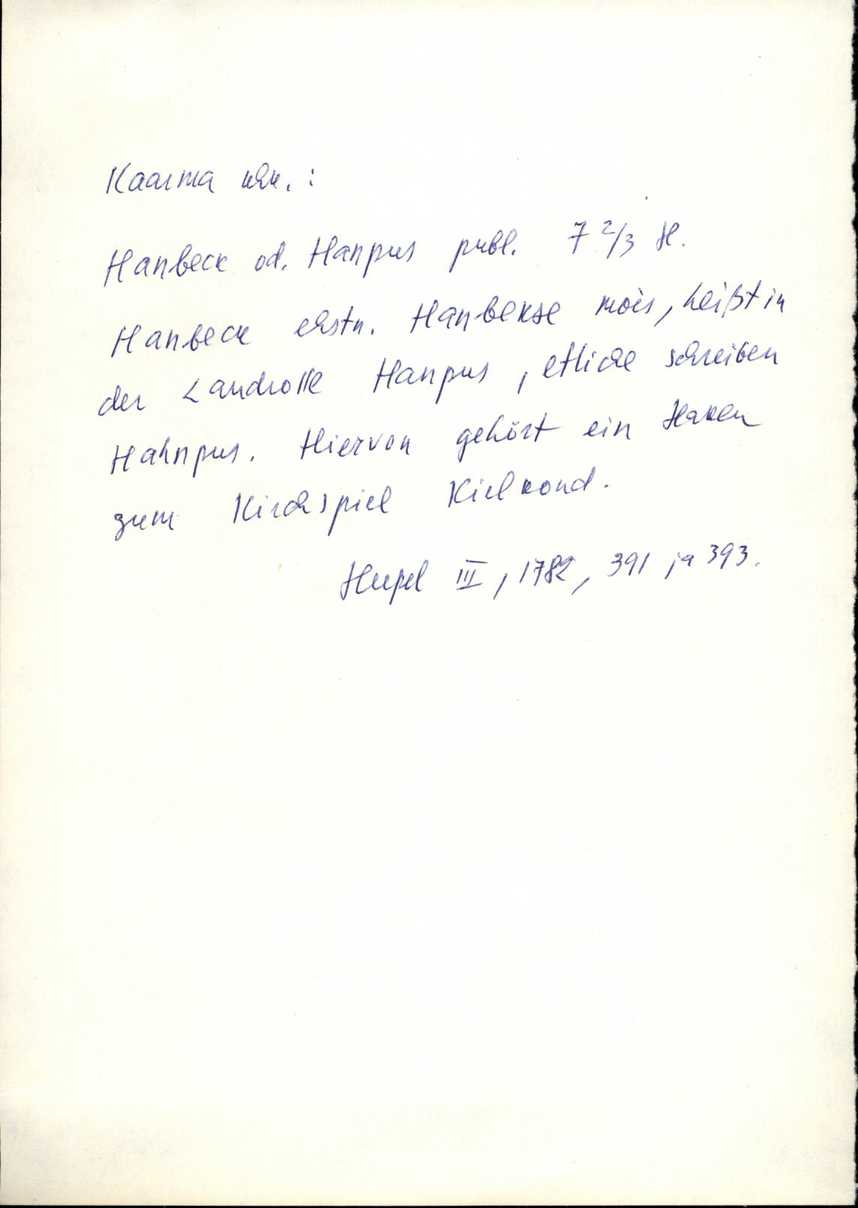 Kaarma khk. :
Hanbeck od. Hanpus publ. 7 2/3 H.
Hanbeck ehstn. Hanbekse mois, heißt in
der Landrolle Hanpus, etliche schreiben
Hahnpus. Hiervon gehört ein Haken
zum Kirchspiel Kielkond.
Hupel III, 1782, 391 ja 393.